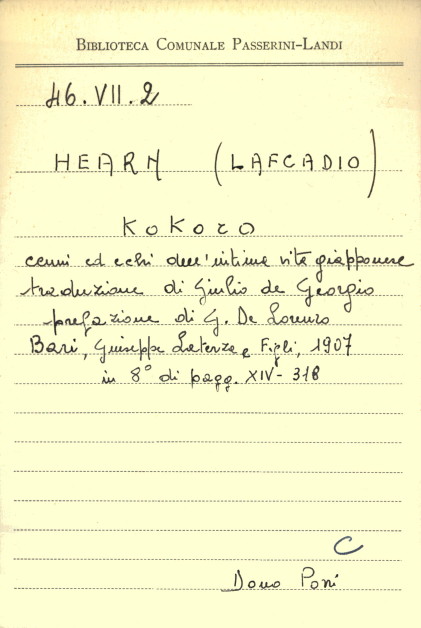 BIBLIOTECA COMUNALE PASSERINI-LANDI
46.VII.2
HEARN (LAFCADIO)
KOKORO
cenni ed echi dell'intima vita giapponese
traduzione di Giulio de Georgio
prefazione di G. De Lorenzo
Bari, Giuseppe Laterza e Figli, 1907
in 8° di pagg. XIV-318
C
Dono